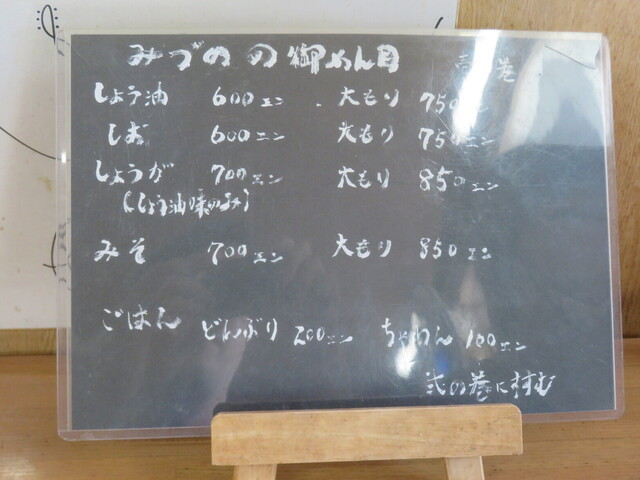 みづのの御めん目 壱の巻
しょう油 600エン 大もり 750エン
しお 600エン 大もり 750エン
しょうが 700エン 大もり 850エン
(しょう油味のみ)
みそ 700エン 大もり 850エン
ごはん どんぶり 200エン ちゃわん 100エン
弐の巻にすすむ